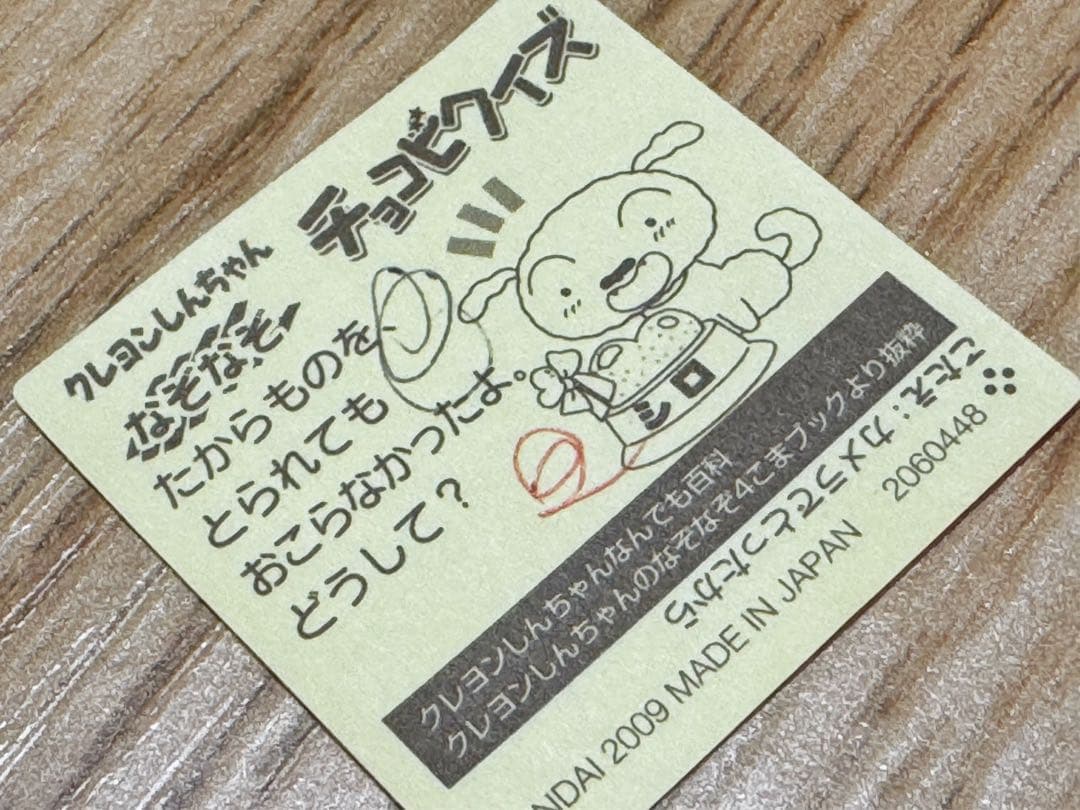 クレヨンしんちゃん
チョコビクイズ
なぞなぞ
たからものを、
とられても
おこらなかったよ。
どうして？
シロ
クレヨンしんちゃんなんでも百科
クレヨンしんちゃんのなぞなぞ4こまブックより抜粋
こたえ：カメラでとったから
2060448
NDAI 2009 MADE IN JAPAN